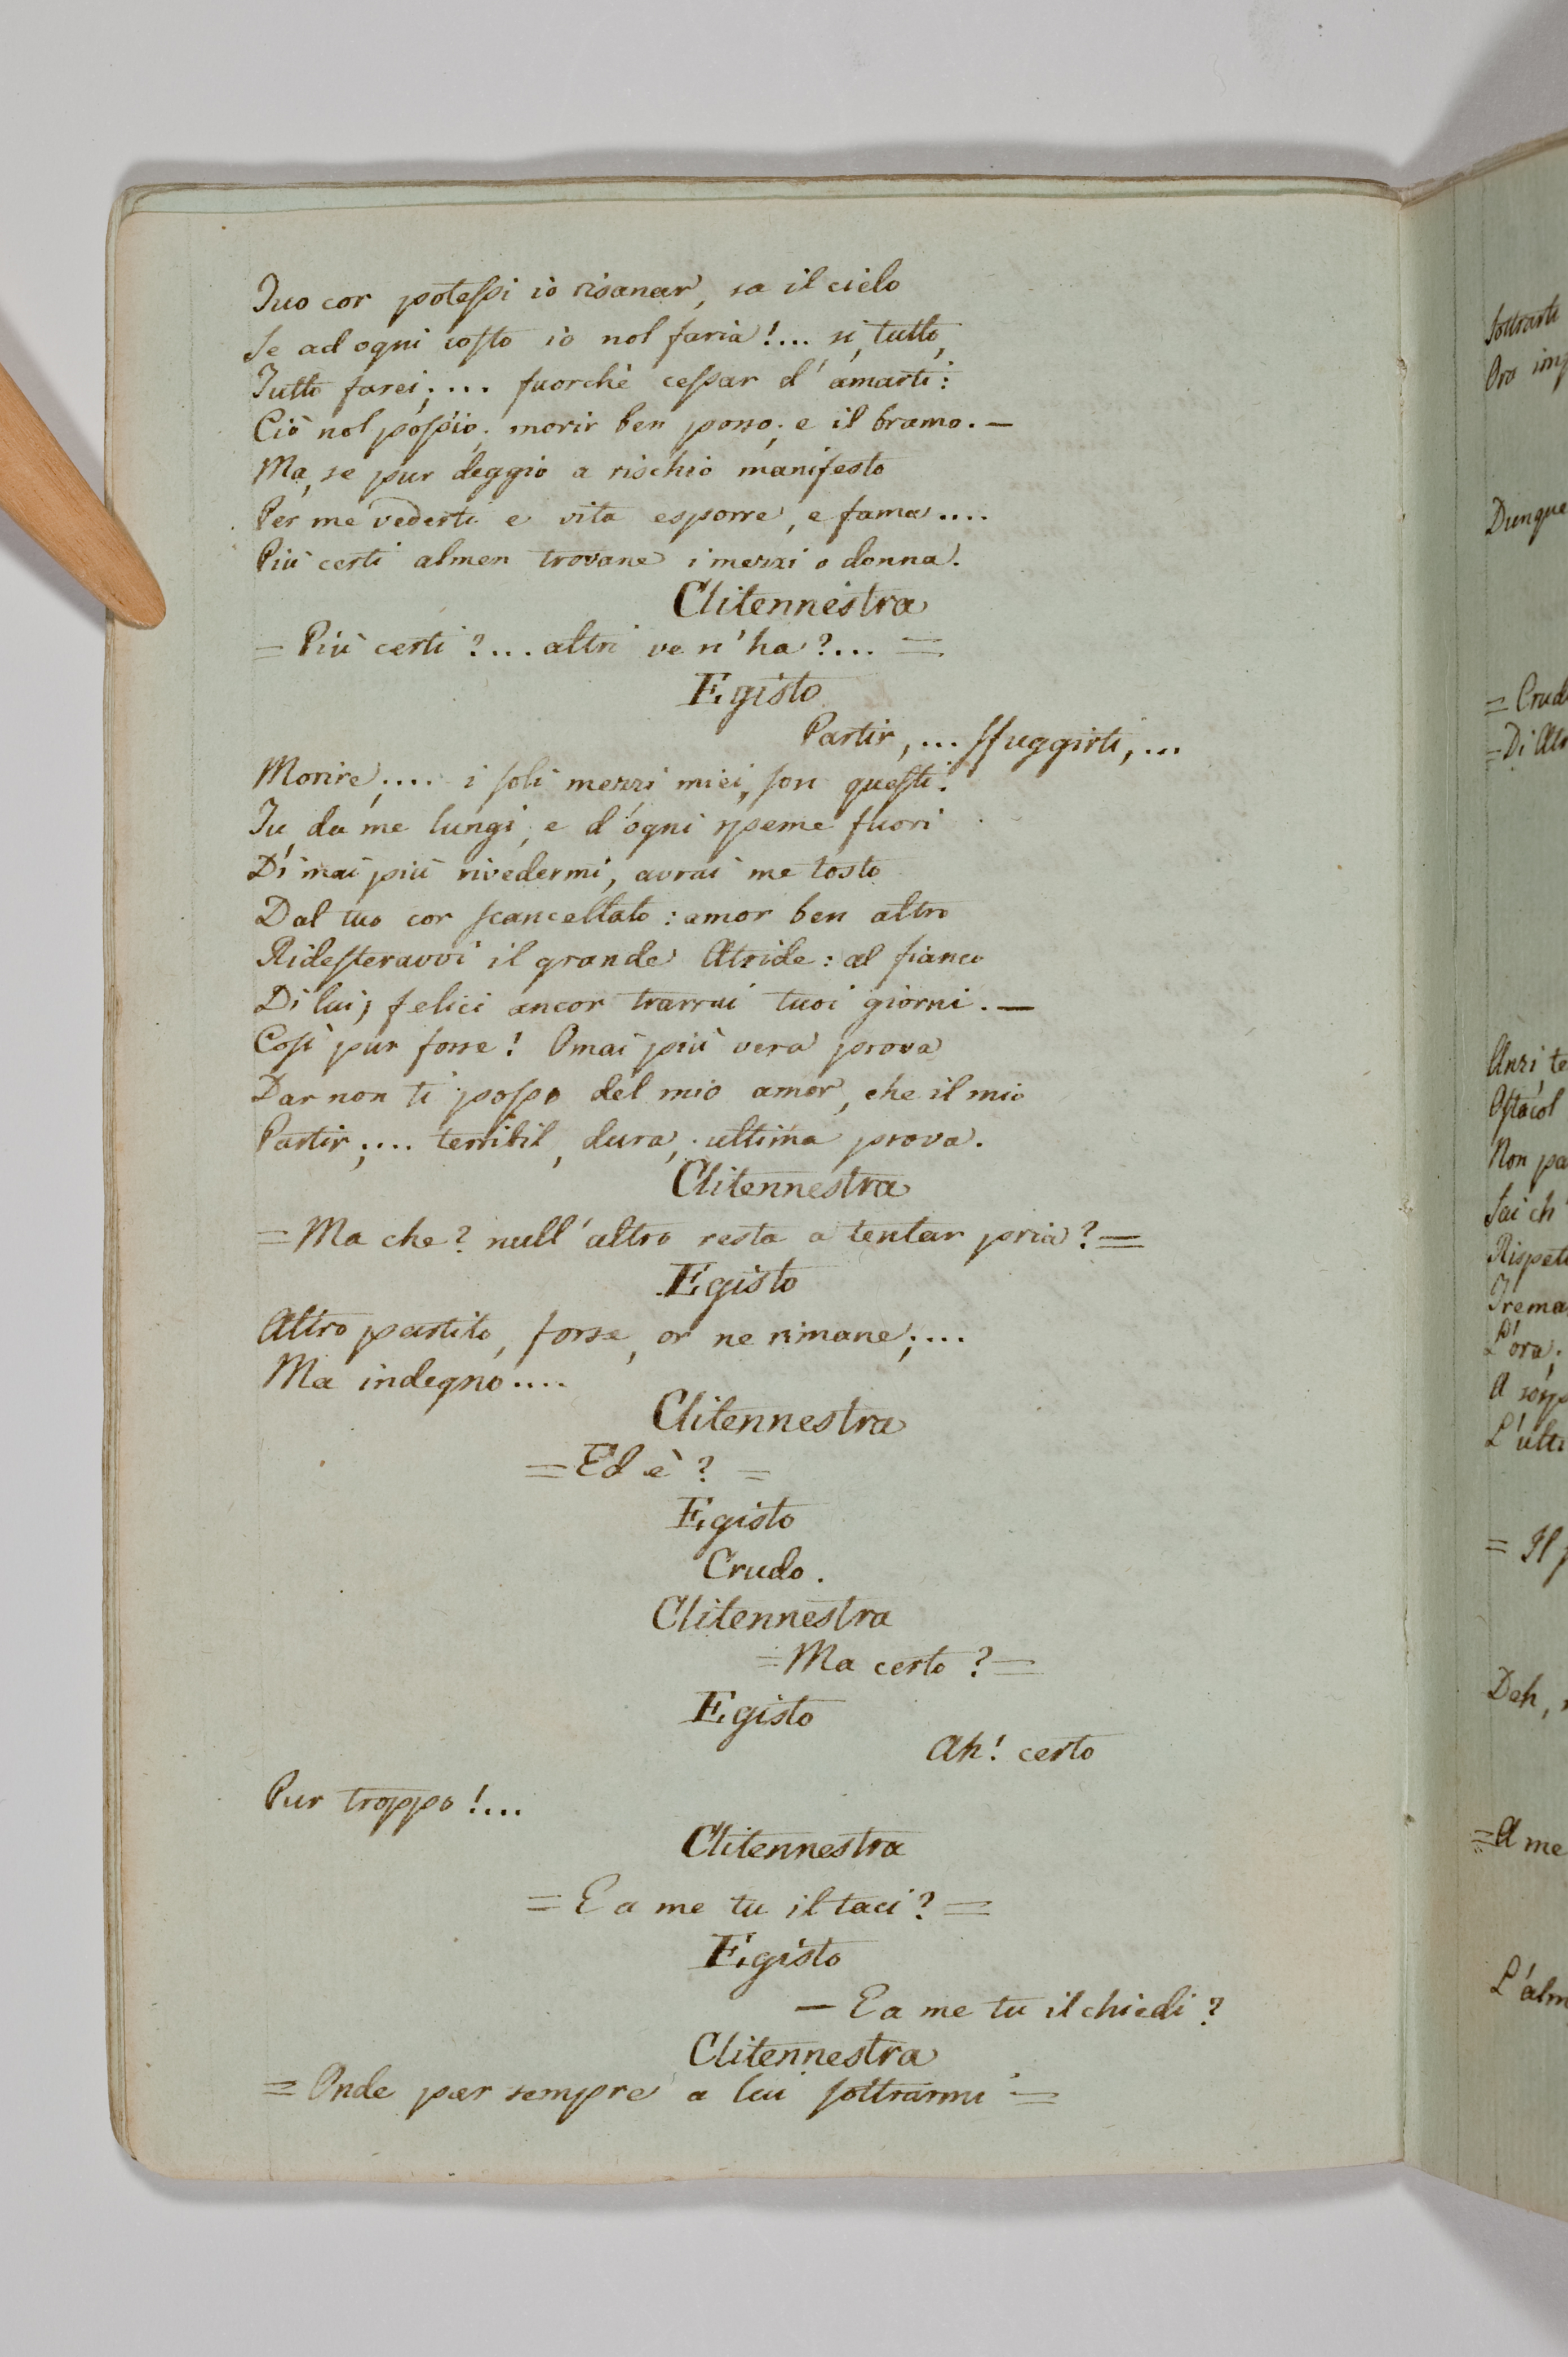 Tuo cor poteſsi io risanar, sa il cielo
Se ad ogni coſto io nol faria!... si, tutto,
Tutto farei;... fuorchè ceſsar d'amarti:
Ciò nol poſs'io; morir ben posso; e il bramo. —
Ma, se pur deggio a rischio manifesto
Per me vederti e vita esporre, e fama....
Più certi almen trovane i mezzi o donna.
Clitennestra
= Più certi?... altri ve n'ha?... =
Egisto
Partir,... sfuggirti,...
Morire;.... i ſoli mezzi miei, ſon queſti.
Tu, da me lungi, e d'ogni speme fuori
Di mai più rivedermi, avrai me tosto
Dal tuo cor ſcancellato: amor ben altro
Rideſteravvi il grande Atride: al fianco
Di lui, felici ancor trarrai tuoi giorni. —
Coſì pur fosse! Omai più vera prova
Dar non ti poſso del mio amor, che il mio
Partir;.... terribil, dura, ultima prova.
Clitennestra
= Ma che? null'altro resta a tentar pria? =
Egisto
Altro partito, forse, or ne rimane;....
Ma indegno....
Clitennestra
= Ed è? =
Egisto
Crudo.
Clitennestra
= Ma certo? =
Egisto
Ah! certo
Pur troppo!...
Clitennestra
= E a me tu il taci? =
Egisto
— E a me tu il chiedi?
Clitennestra
= Onde per sempre a lui ſottrarmi =
Dunque
= Crud
= Di Atr
Anzi te
Oſtacol
Non pa
Sai ch'
Trema
L'ora;
L'ulti
Deh,
= A me
L'alm